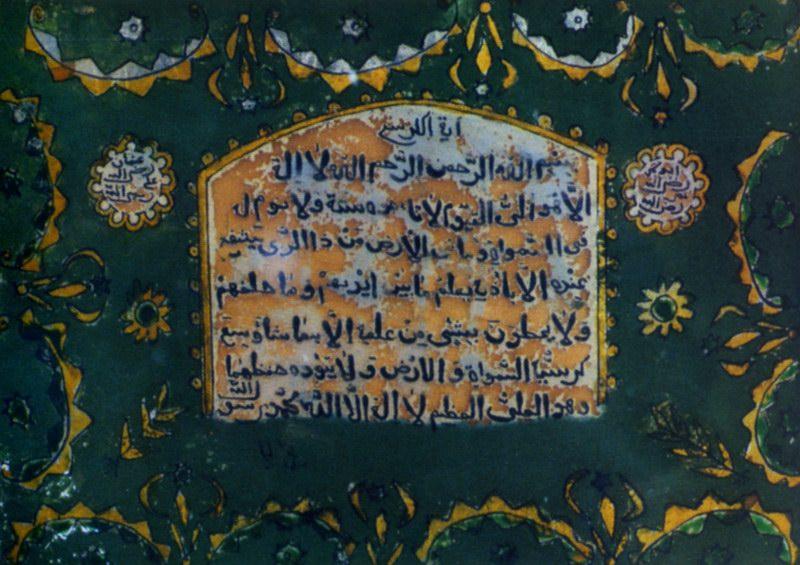 اية الكرسي
بسم الله الرحمن الرحيم الله لا اله
الا هو الحى القيوم لا تاخذه سنة ولا نوم له
فى السموات وما فى الارض من ذا الذى يشفع
عنده الا باذنه يعلم ما بين ايديهم وما خلفهم
ولا يحيطون بشئ من علمه الا بما شاء وسع
كرسيه السموات والارض ولا يؤده حفظهما
وهو العلى العظيم لا اله الا الله محمد رسول الله